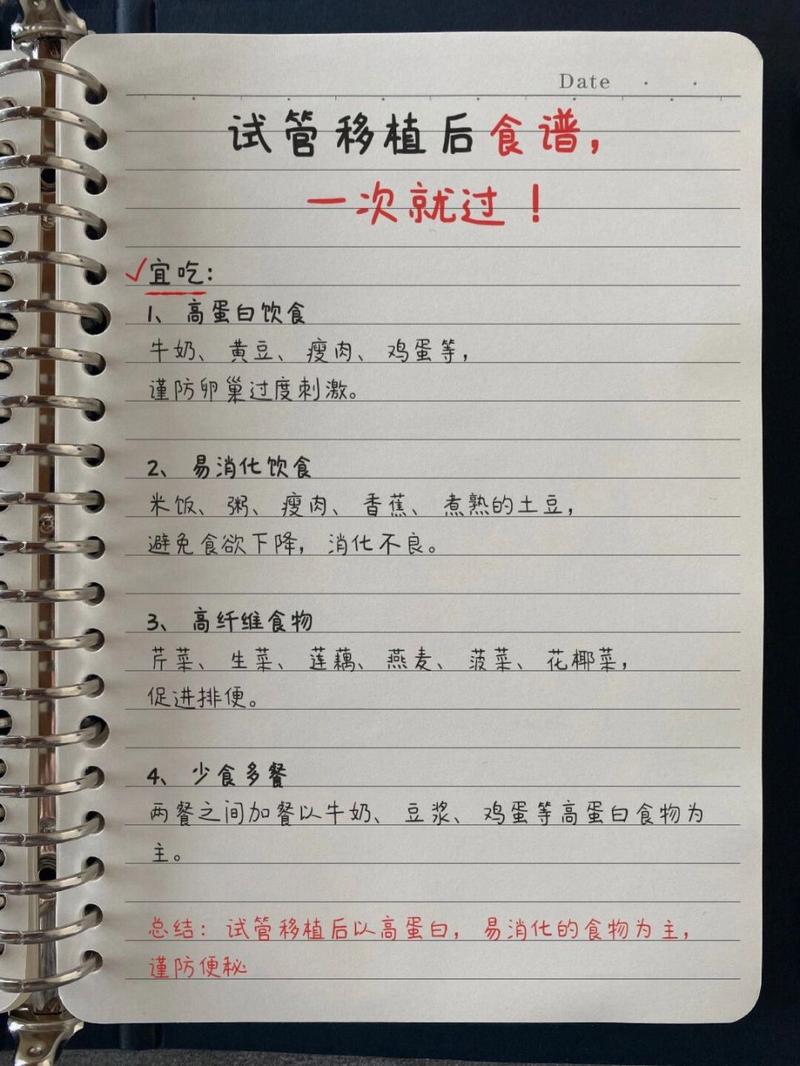 Date · ·
试管移植后食谱，
一次就过！
√宜吃：
1、高蛋白饮食
牛奶、黄豆、瘦肉、鸡蛋等，
谨防卵巢过度刺激。
2、易消化饮食
米饭、粥、瘦肉、香蕉、煮熟的土豆，
避免食欲下降，消化不良。
3、高纤维食物
芹菜、生菜、莲藕、燕麦、菠菜、花椰菜，
促进排便。
4、少食多餐
两餐之间加餐以牛奶、豆浆、鸡蛋等高蛋白食物为
主。
总结：试管移植后以高蛋白，易消化的食物为主，
谨防便秘